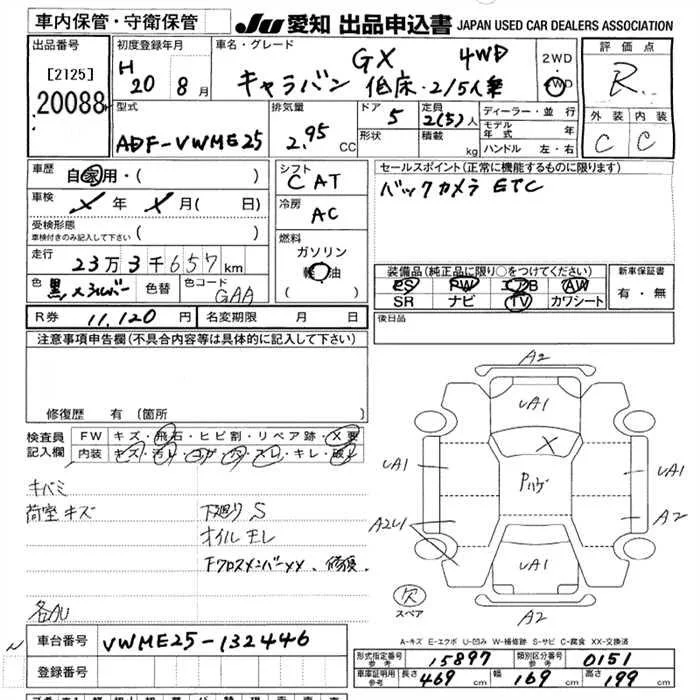 車内保管・守衛保管
JU 愛知 出品申込書 JAPAN USED CAR DEALERS ASSOCIATION
出品番号
[2125]
20088
初度登録年月
H 20 8月
車名・グレード
GX 4WD
キャラバン 低床・2/5人乗
2WD
・
4WD
評価点
R
外装 内装
C C
型式
ADF-VWME25
排気量
2.95 CC
ドア 5
形状
定員
2(5)人
積載 kg
ディーラー・並行
モデル年式 年
ハンドル 左・右
車歴 自家用・( )
車検 X年 X月( 日)
受検形態
車検付きのみ記入して下さい ( )
走行 23万3千657km
色 黒メシルバー 色替 色コード GAA
シフト
CAT
冷房
AC
燃料
ガソリン
軽油
セールスポイント(正常に機能するものに限ります)
バックカメラ ETC
装備品(純正品に限り○をつけてください)
PS PW エアB AW
SR ナビ TV カワシート
新車保証書
有・無
後日品
R券 11,120円 名変期限 月 日
注意事項申告欄(不具合内容等は具体的に記入して下さい)
修復歴 有 (箇所
検査員
記入欄
FW キズ・飛石・ヒビ割・リペア跡・X要
内装 キズ・汚レ・コゲ・穴・スレ・キレ・破レ
キバミ
荷室キズ
下廻りS
オイルモレ
FクロスメンバーXX、修復。
各AU
A2
UA1
X
Pハゲ
UA1
UA1
UA1
A2U1
A2
A2
欠
スペア
A-キズ E-エクボ U-凹み W-補修跡 S-サビ C-腐食 XX-交換済
N
車台番号 VWME25-132446
登録番号
形式指定番号
参考
15897
類別区分番号
参考
0151
車庫証明用
参考
長さ 469 cm 幅 169 cm 高さ 199 cm